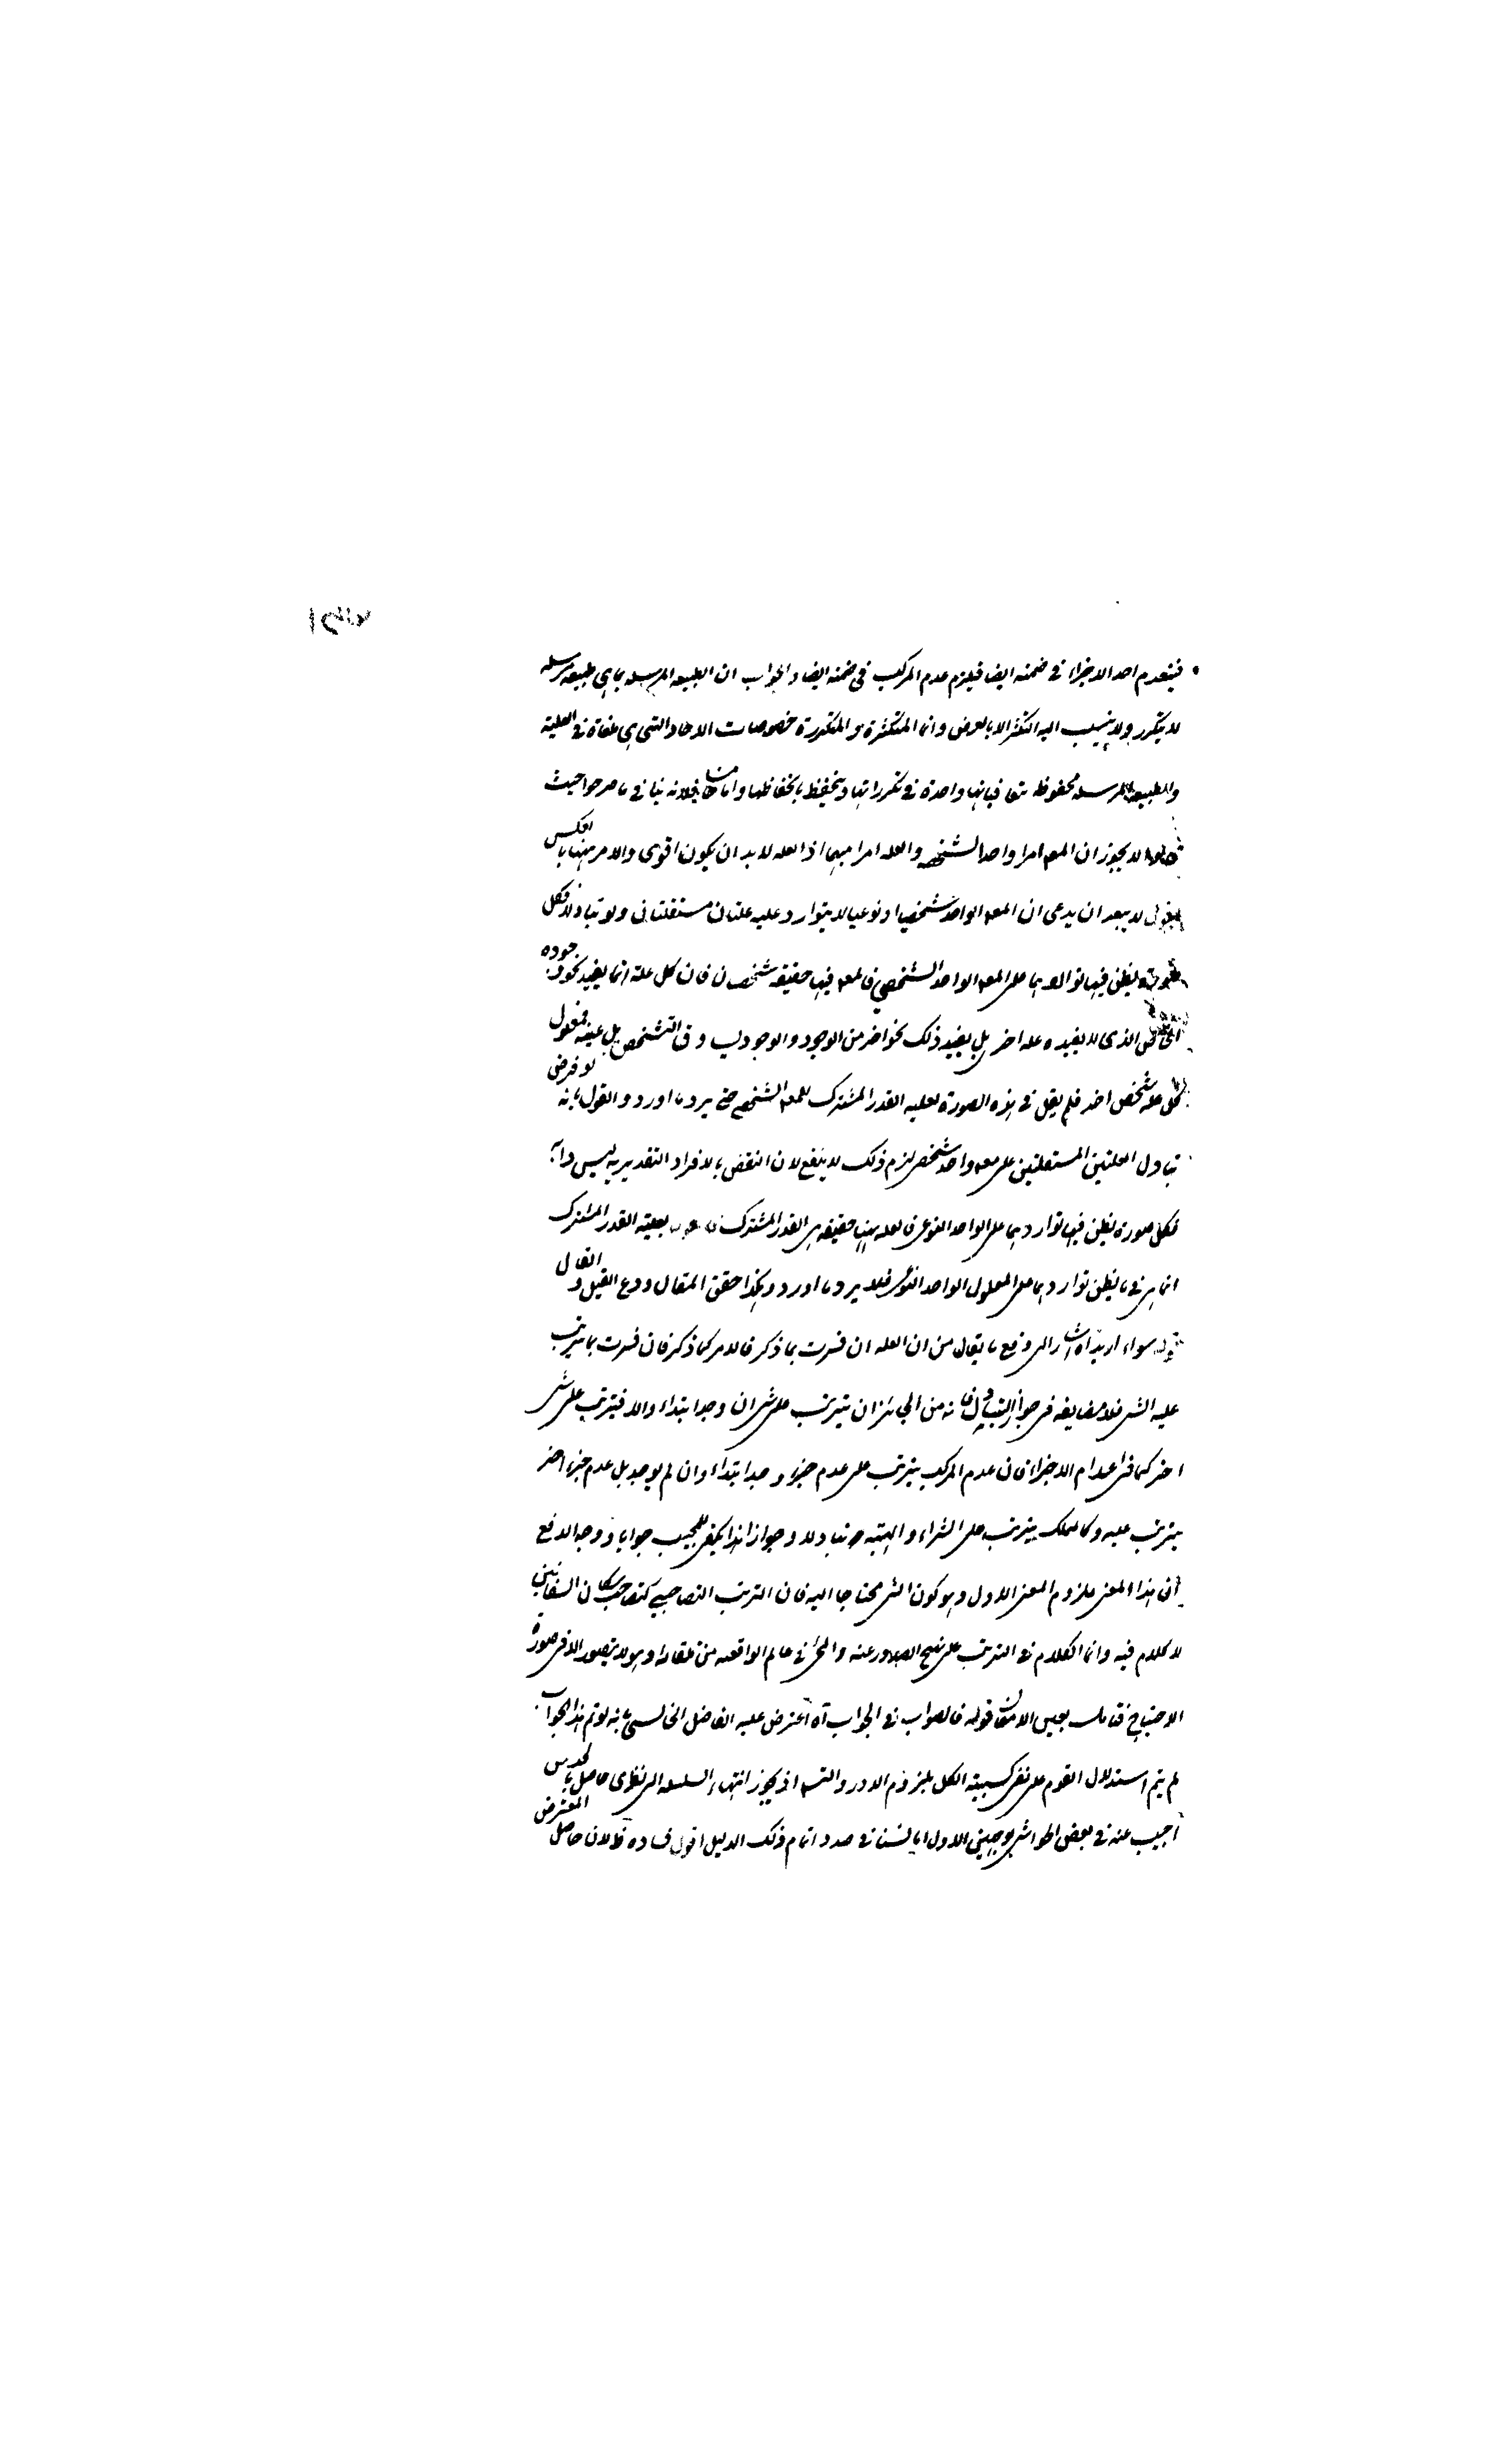 فينعدم احد الاجزاء في ضمنه ايضا فيلزم عدم المركب في ضمنه ايضا والجواب ان الطبيعه المرسله بما هي طبيعه مرسله
لا يتكرر ولا ينسب اليه التكثر الا بالعرض وانما المتكثرة والمتكررة خصوصات الاحاد التي هي ملغاة في العلية
والطبيعه المرسله محفوظه متعاقباتها واحدة في تكرراتها وينحفظ بانحفاظها واما ثالثا فلانه ينافي ما صرحوا حيث
قالوا لا يجوز ان المعه امرا واحدا شخصيه والعله امرا مبهما اذ العله لا بد ان يكون اقوى والامر ههنا بالعكس
لا يبعد ان يدعى ان المعه الواحد شخصيا او نوعيا لا يتوارد عليه علتان مستقلتان ولو تبادلا فكل
صورة يظن فيها تواردهما على المعه الواحد الشخصي فالمعه فيها حقيقه شخصان فان كل علة انما يفيد نحو وجوده
الخاص الذي لا يفيده عله اخرى بل يفيد ذلك نحوا اخر من الوجود والوجود يساوق التشخص بل عينه فمعلول
كل عله شخص اخر فلم يقل في هذه الصورة لعليه القدر المشترك للمعه الشخصي حتى يرد ما اورد والقول بانه لو فرض
تبادل العلتين المستقلتين على معه واحد شخصي لزم ذلك لا ينفع لان النقض بالافراد التقديريه ليس دابه
فكل صورة يظن فيها تواردهما على الواحد النوعي فالعله ههنا حقيقه هي القدر المشترك بعليته القدر المشترك
انما هي في ما يظن تواردهما على المعلول الواحد النوعي فلا يرد ما اورد وهكذا حقق المقال ودع القيل والقال
قوله سواء اريد اه اشار الى دفع ما يقال من ان العله ان فسرت بما ذكر فالامر كما ذكر فان فسرت بما يترتب
عليه الشي فلا مضايقه في جواز التبادل فانه من الجائز ان يترتب على شي ان وجد ابتداء والا فيترتب على شي
اخر كما في اعدام الاجزاء فان عدم المركب يترتب على عدم جزء وجد ابتداء وان لم يوجد بل عدم جزء اخر
يترتب عليه وكالملك يترتب على الشراء والهبه تبادلا وجواز هذا يكفي للمجيب جوابا ووجه الدفع
ان هذا المعنى ملزوم المعنى الاول وهو كون الشي محتاجا اليه فان الترتب التصاحبي كتصاحب سكان السفائن
لا كلام فيه وانما الكلام في الترتب على نهج الصدور عنه والمجئ في عالم الواقعه من تلقائه وهو لا يتصور الا في صورة
الاحتياج فتامل بعين الامعان قوله فالصواب في الجواب اه اعترض عليه الفاضل الخالسي بانه لو تم هذا الجواب
لم يتم استدلال القوم على نفي كسبيته الكل بلزوم الدور والتسه اذ يجوز انتهاء السلسله الى نظري حاصل بالحدس
اجيب عنه في بعض الحواشي بوجهين الاول انا لسنا في صدد اتمام ذلك الدليل اقول فساده ظ لان حاصل المعترض